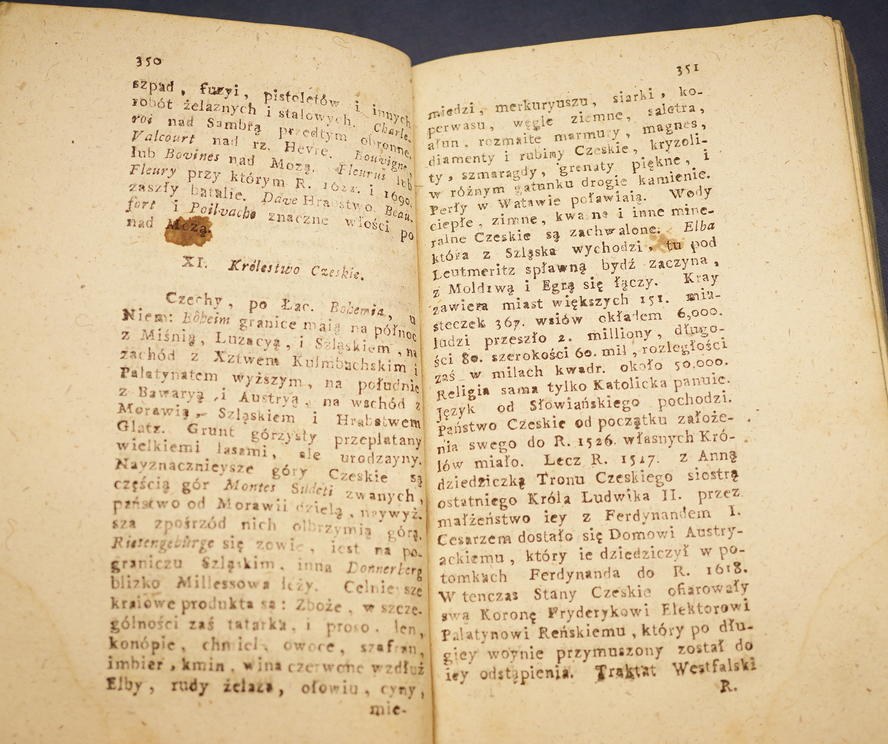 350
szpad, fuzyi, pistoletów i innych
robót żelaznych i stalowych. Charle-
roi nad Sambrą przedtym obronne.
Valcourt nad rz. Hevre. Bouvigne,
lub Bovines nad Mozą. Fleurus lub
Fleury przy którym R. 1622. i 1690.
zaszły batalie. Dave Hrabstwo. Beau-
fort i Poilvache znaczne włości po
nad Mozą.
XI. Królestwo Czeskie.
Czechy, po Łac. Bohemia, u
Niem: Böheim granice maią na północ
z Miśnią, Luzacyą, i Szląskiem, na
zachód z Xztwem Kulmbachskim i
Palatynatem wyższym, na południe
z Bawaryą, i Austryą, na wschód z
Morawią, Szląskiem i Hrabstwem
Glatz. Grunt górzysty przeplatany
wielkiemi lasami, ale urodzayny.
Nayznacznieysze góry Czeskie są
częścią gór Montes Sudeti zwanych,
państwo od Morawii dzielą, naywyż-
sza zpośrzód nich olbrzymią górą,
Riesengebürge się zowie, iest na po-
graniczu Szląskim, inna Donnerberg
blizko Millessowa leży. Celnieysze
kraiowe produkta są: Zboże, w szcze-
gólności zaś tatarka, i proso, len,
konópie, chmiel, owoce, szafran,
imbier, kmin, wina czerwone wzdłuż
Elby, rudy żelaza, ołowiu, cyny,
mie-
351
miedzi, merkuryuszu, siarki, ko-
perwasu, węgle ziemne, saletra,
ałun, rozmaite marmury, magnes,
diamenty i rubiny Czeskie, kryzoli-
ty, szmaragdy, grenaty piękne, i
w różnym gatunku drogie kamienie.
Perły w Watawie poławiaią. Wody
ciepłe, zimne, kwaśne i inne mine-
ralne Czeskie są zachwalone. Elba
która z Szląska wychodzi, tu pod
Leutmeritz spławną bydź zaczyna,
z Moldiwą i Egrą się łączy. Kray
zawiera miast większych 151. mia-
steczek 367. wsiów okładem 6,000.
ludzi przeszło 2. milliony, długo-
ści 80. szerokości 60. mil, rozległości
zaś w milach kwadr. około 50,000.
Religia sama tylko Katolicka panuie.
Język od Słowiańskiego pochodzi.
Państwo Czeskie od początku założe-
nia swego do R. 1526. własnych Kró-
lów miało. Lecz R. 1527. z Anną
dziedziczką Tronu Czeskiego siostrą
ostatniego Króla Ludwika II. przez
małżeństwo iey z Ferdynandem I.
Cesarzem dostało się Domowi Austry-
ackiemu, który ie dziedziczył w po-
tomkach Ferdynanda do R. 1618.
W tenczas Stany Czeskie ofiarowały
swą Koronę Fryderykowi Elektorowi
Palatynowi Reńskiemu, który po dłu-
giey woynie przymuszony został do
iey odstąpienia. Traktat Westfalski
R.